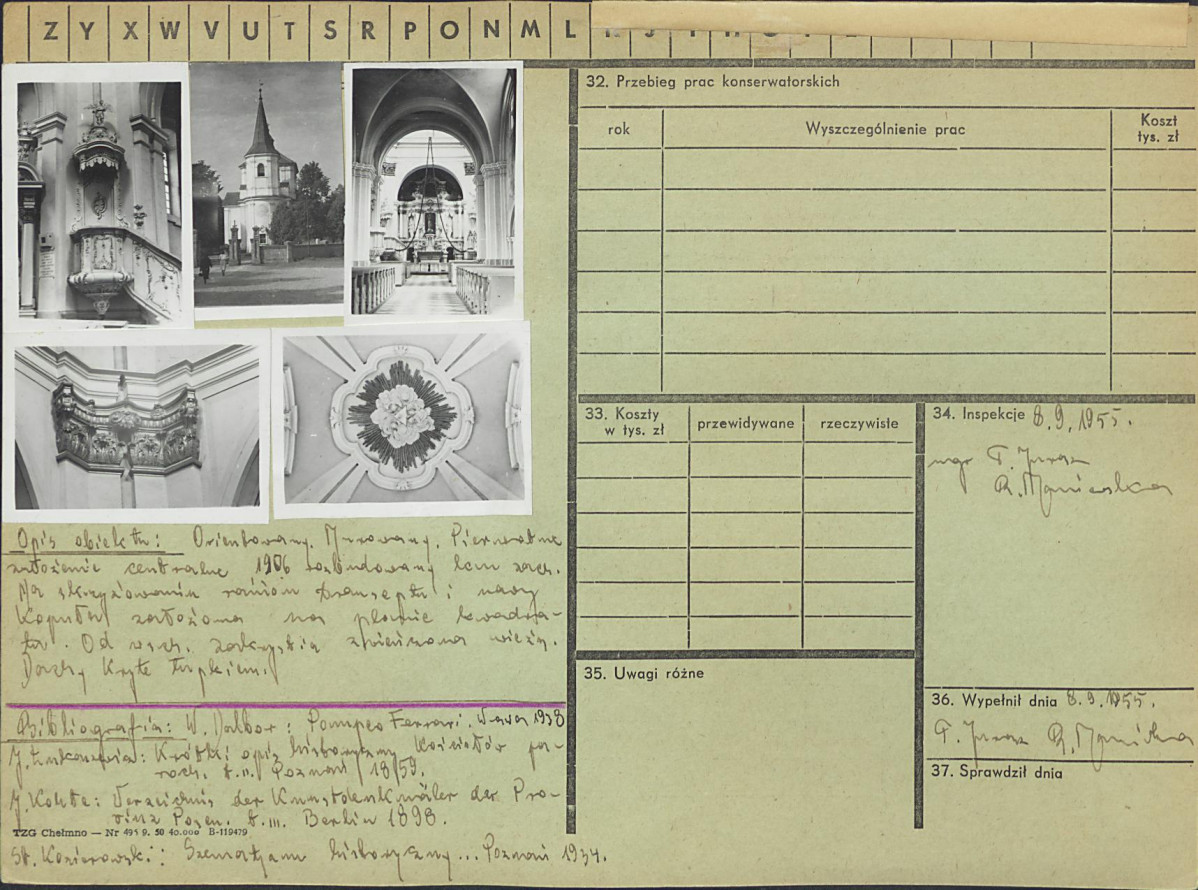 Z Y X W V U T S R P O N M L
32. Przebieg prac konserwatorskich
rok
Wyszczególnienie prac
Koszt
tys. zł
33. Koszty
w tys. zł
przewidywane
rzeczywiste
34. Inspekcje 8.9.1955.
mgr T. Jurasz
R. Maniewska
Opis obiektu: Orientowany. Murowany. Pierwotne
założenie centralne 1906 rozbudowany ku zach.
Na skrzyżowaniu ramion transeptu i nawy
Kopuła założona na planie kwadra-
tu. Od wsch. zakrystia zwieńczona wieżą.
Dachy kryte łupkiem.
35. Uwagi różne
36. Wypełnił dnia 8.9.1955.
T. Jurasz
37. Sprawdził dnia
Bibliografia: W. Dalbor: Pompeo Ferrari. W-awa 1938
J. Łukaszewicz: Krótki opis historyczny Kościołów pa-
roch. t. II. Poznań 1859.
J. Kohte: Verzeichnis der Kunstdenkmäler der Pro-
vinz Posen. t. III. Berlin 1898.
TZG Chełmno — Nr 495 9. 50 40.000 B-119479
St. Kozierowski: Szematyzm historyczny... Poznań 1934.